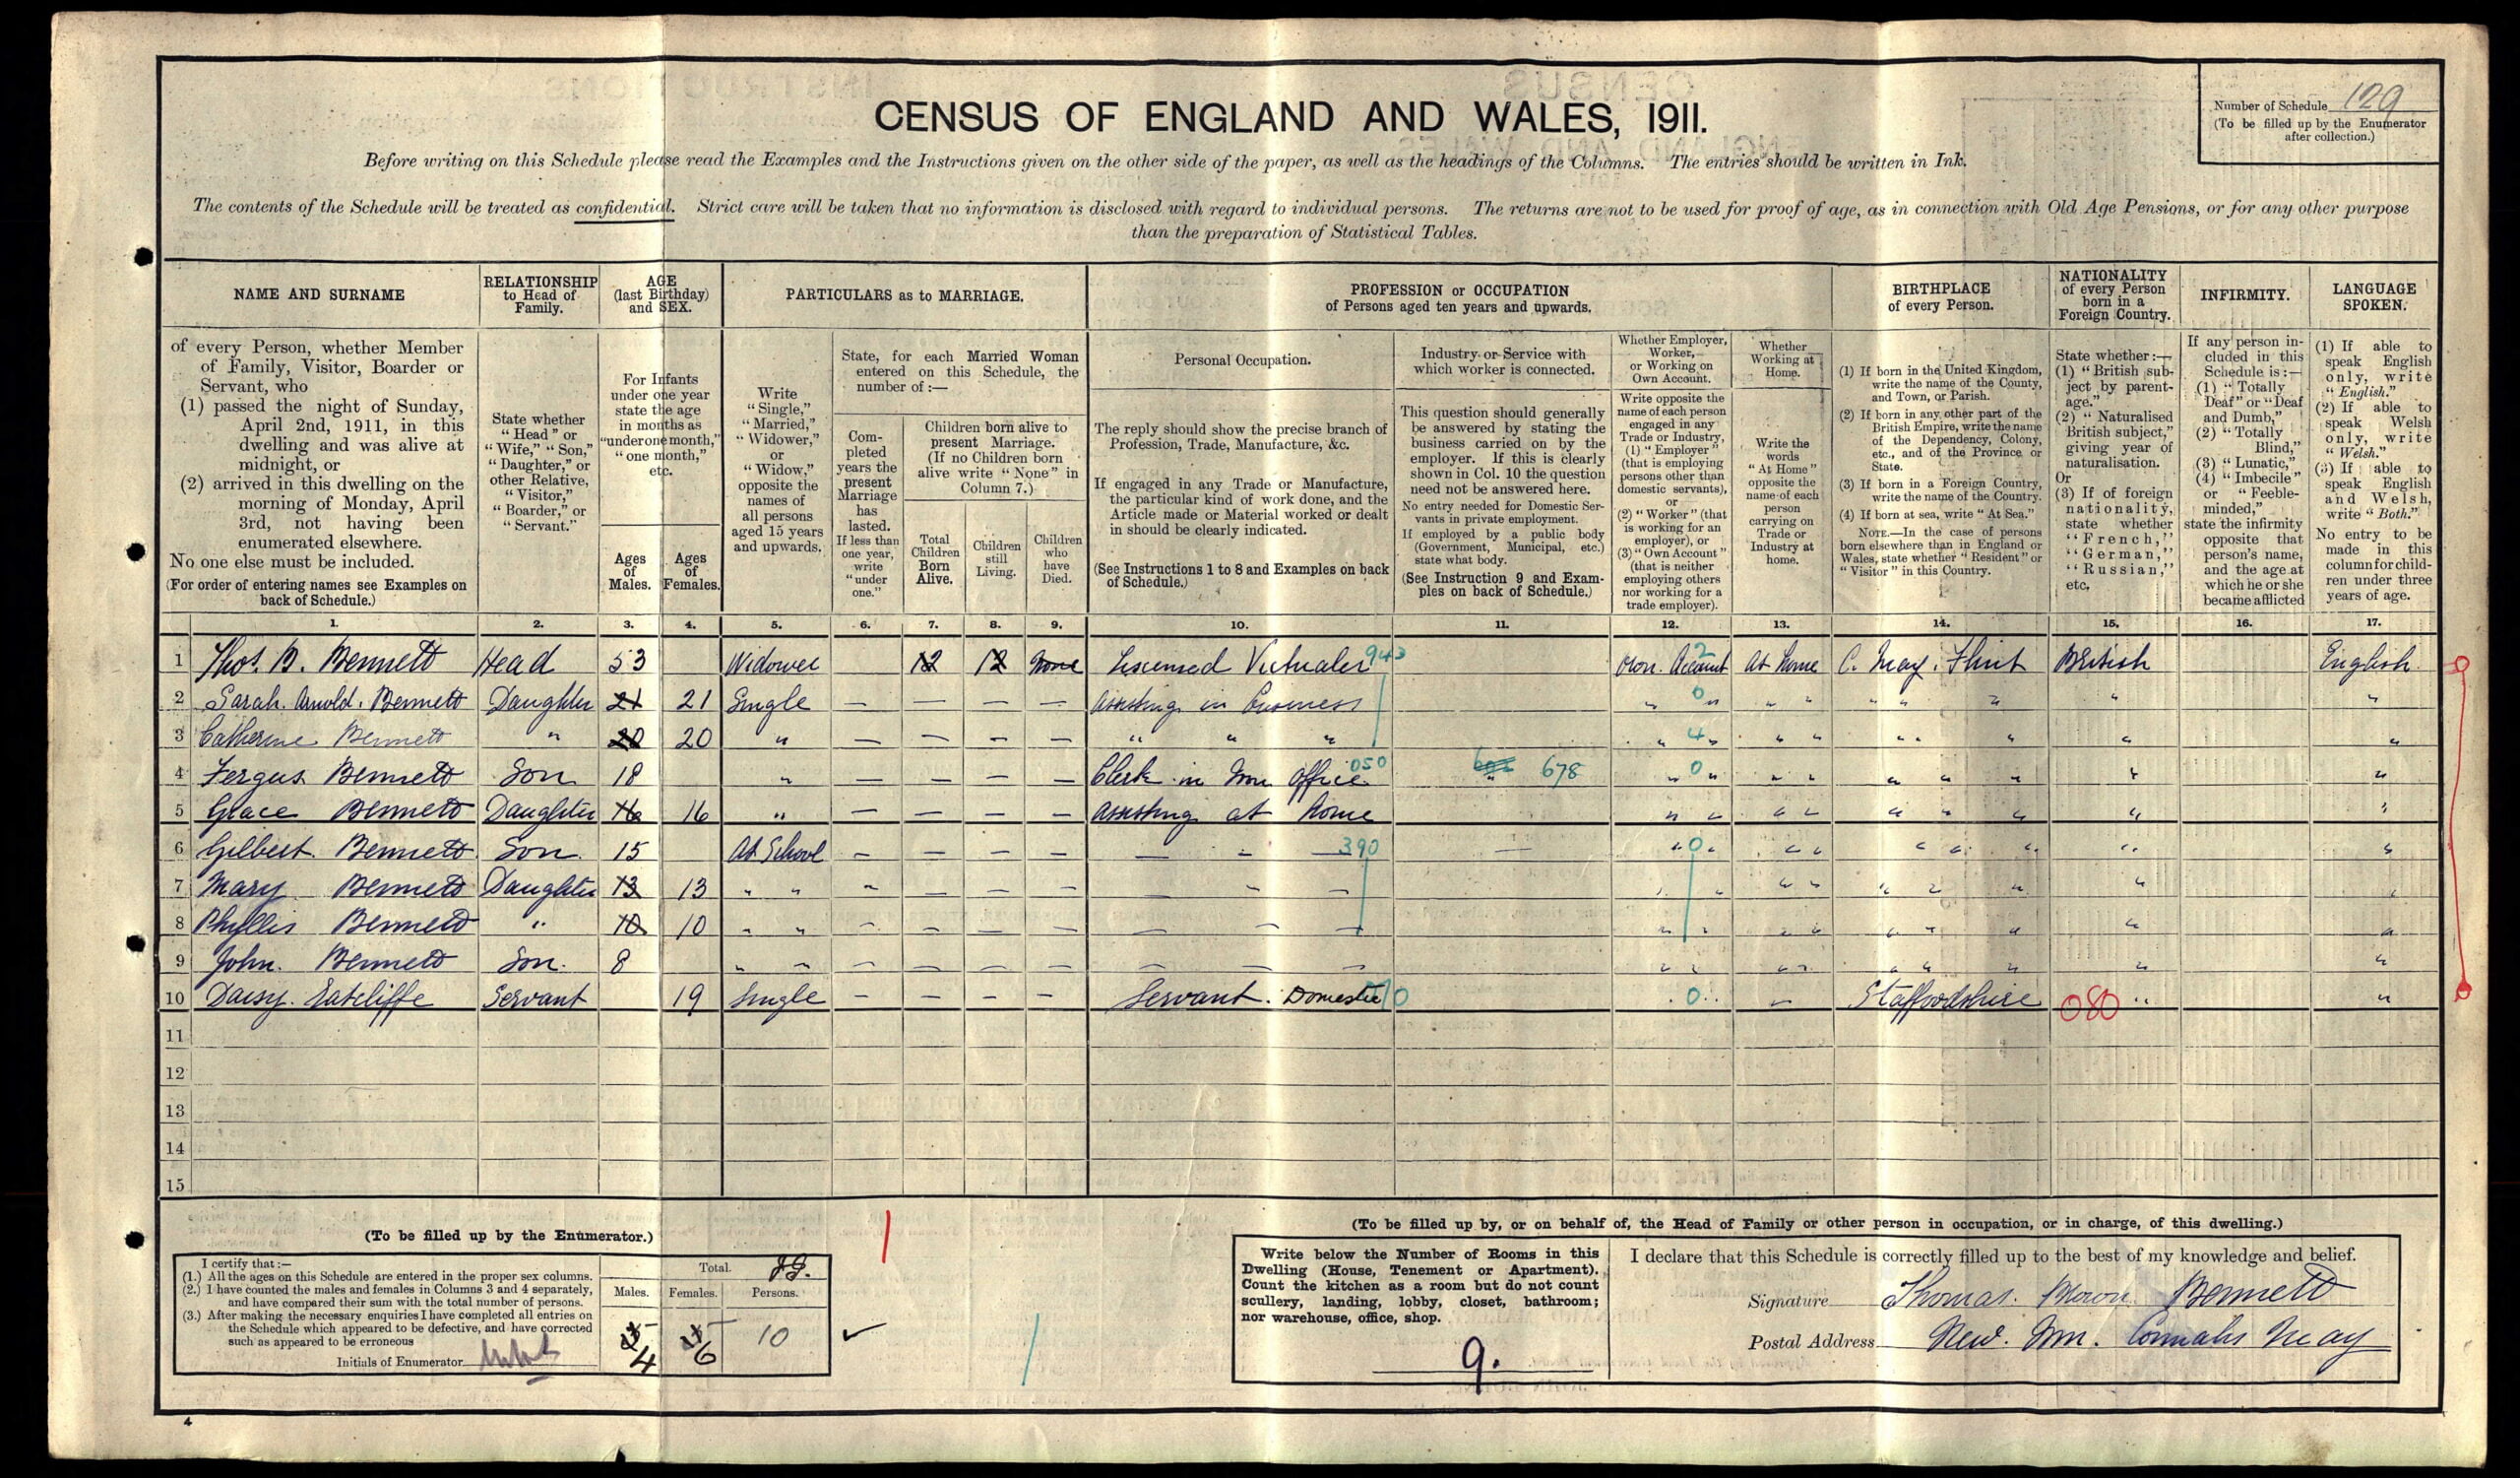 CENSUS OF ENGLAND AND WALES, 1911.
Number of Schedule 129
(To be filled up by the Enumerator
after collection.)
Before writing on this Schedule please read the Examples and the Instructions given on the other side of the paper, as well as the headings of the Columns. The entries should be written in Ink.
The contents of the Schedule will be treated as confidential. Strict care will be taken that no information is disclosed with regard to individual persons. The returns are not to be used for proof of age, as in connection with Old Age Pensions, or for any other purpose
than the preparation of Statistical Tables.
NAME AND SURNAME
of every Person, whether Member
of Family, Visitor, Boarder or
Servant, who
(1) passed the night of Sunday,
April 2nd, 1911, in this
dwelling and was alive at
midnight, or
(2) arrived in this dwelling on the
morning of Monday, April
3rd, not having been
enumerated elsewhere.
No one else must be included.
(For order of entering names see Examples on
back of Schedule.)
RELATIONSHIP
to Head of
Family.
State whether
"Head" or
"Wife," "Son,"
"Daughter," or
other Relative,
"Visitor,"
"Boarder," or
"Servant."
AGE
(last Birthday)
and SEX.
For Infants
under one year
state the age
in months as
"under one month,"
"one month,"
etc.
Ages
of
Males.
Ages
of
Females.
PARTICULARS as to MARRIAGE.
Write
"Single,"
"Married,"
"Widower,"
or
"Widow,"
opposite the
names of
all persons
aged 15 years
and upwards.
State, for each Married Woman
entered on this Schedule, the
number of:—
Com-
pleted
years the
present
Marriage
has
lasted.
If less than
one year,
write
"under
one."
Children born alive to
present Marriage.
(If no Children born
alive write "None" in
Column 7.)
Total
Children
Born
Alive.
Children
still
Living.
Children
who
have
Died.
PROFESSION or OCCUPATION
of Persons aged ten years and upwards.
Personal Occupation.
The reply should show the precise branch of
Profession, Trade, Manufacture, &c.
If engaged in any Trade or Manufacture,
the particular kind of work done, and the
Article made or Material worked or dealt
in should be clearly indicated.
(See Instructions 1 to 8 and Examples on back
of Schedule.)
Industry or Service with
which worker is connected.
This question should generally
be answered by stating the
business carried on by the
employer. If this is clearly
shown in Col. 10 the question
need not be answered here.
No entry needed for Domestic Ser-
vants in private employment.
If employed by a public body
(Government, Municipal, etc.)
state what body.
(See Instruction 9 and Exam-
ples on back of Schedule.)
Whether Employer,
Worker,
or Working on
Own Account.
Write opposite the
name of each person
engaged in any
Trade or Industry,
(1) "Employer"
(that is employing
persons other than
domestic servants),
or
(2) "Worker" (that
is working for an
employer), or
(3) "Own Account"
(that is neither
employing others
nor working for a
trade employer).
Whether
Working at
Home.
Write the
words
"At Home"
opposite the
name of each
person
carrying on
Trade or
Industry at
home.
BIRTHPLACE
of every Person.
(1) If born in the United Kingdom,
write the name of the County,
and Town, or Parish.
(2) If born in any other part of the
British Empire, write the name
of the Dependency, Colony,
etc., and of the Province or
State.
(3) If born in a Foreign Country,
write the name of the Country.
(4) If born at sea, write "At Sea."
NOTE.—In the case of persons
born elsewhere than in England or
Wales, state whether "Resident" or
"Visitor" in this Country.
NATIONALITY
of every Person
born in a
Foreign Country.
State whether:—
(1) "British sub-
ject by parent-
age."
(2) "Naturalised
British subject,"
giving year of
naturalisation.
Or
(3) If of foreign
nationality,
state whether
"French,"
"German,"
"Russian,"
etc.
INFIRMITY.
If any person in-
cluded in this
Schedule is:—
(1) "Totally
Deaf" or "Deaf
and Dumb,"
(2) "Totally
Blind,"
(3) "Lunatic,"
(4) "Imbecile"
or "Feeble-
minded,"
state the infirmity
opposite that
person's name,
and the age at
which he or she
became afflicted
LANGUAGE
SPOKEN.
(1) If able to
speak English
only, write
"English."
(2) If able to
speak Welsh
only, write
"Welsh."
(3) If able to
speak English
and Welsh,
write "Both."
No entry to be
made in this
column for child-
ren under three
years of age.
1. 2. 3. 4. 5. 6. 7. 8. 9. 10. 11. 12. 13. 14. 15. 16. 17.
1 Thos. B. Bennett Head 53 Widower 12 12 None Licensed Victualer 943 Own. Account 2 At Home C. Quay. Flint British English
2 Sarah. Arnold. Bennett Daughter 21 21 Single — — — — Assisting in Business " 0 " " " " " " "
3 Catherine Bennett " 20 20 " — — — — " " " " 4 " " " " " " "
4 Fergus Bennett Son 18 " — — — — Clerk in Iron Office 050 678 " 0 " " " " " " " "
5 Grace Bennett Daughter 16 16 " — — — — Assisting at Home " " " " " " " " "
6 Gilbert Bennett Son 15 At School — — — — — — 390 — " 0 " " " " " " " "
7 Mary Bennett Daughter 13 13 " " — — — — — — — " " " " " " " " "
8 Phyllis Bennett " 10 10 " " — — — — — — — " " " " " " " " "
9 John. Bennett Son. 8 " " — — — — — — — " " " " " " " " "
10 Daisy. Satcliffe Servant 19 Single — — — — Servant. Domestic 0 " — Staffordshire 080 " "
11
12
13
14
15
(To be filled up by the Enumerator.)
I certify that:—
(1.) All the ages on this Schedule are entered in the proper sex columns.
(2.) I have counted the males and females in Columns 3 and 4 separately,
and have compared their sum with the total number of persons.
(3.) After making the necessary enquiries I have completed all entries on
the Schedule which appeared to be defective, and have corrected
such as appeared to be erroneous
Initials of Enumerator
Total.
Males. Females. Persons.
4 6 10
(To be filled up by, or on behalf of, the Head of Family or other person in occupation, or in charge, of this dwelling.)
Write below the Number of Rooms in this
Dwelling (House, Tenement or Apartment).
Count the kitchen as a room but do not count
scullery, landing, lobby, closet, bathroom;
nor warehouse, office, shop.
9.
I declare that this Schedule is correctly filled up to the best of my knowledge and belief.
Signature Thomas. Brown. Bennett
Postal Address New. Inn. Connahs Quay
4